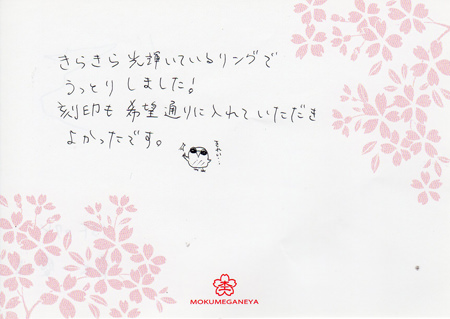 きらきら光輝いているリングで
うっとりしました!
刻印も希望通りに入れていただき
よかったです。
きれい…
MOKUMEGANEYA